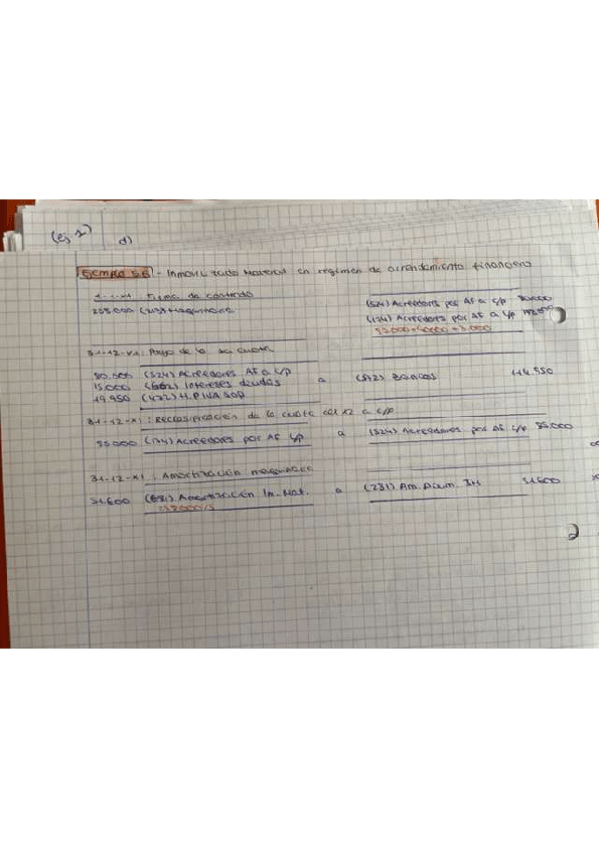 (ej 2)
d)
EJEMPLO 5.6 - Inmovilizado Material en régimen de arrendamiento financiero
1-1-X1 Firma de contrato
(524) Acreedores por AF a c/p 80.000
(213) Maquinaria
(174) Acreedores por AF a l/p
31-12-X1: Pago de la cuota
80.000 (524) Acreedores AF a c/p
15.000 (662) Intereses deudas a (572) Bancos 114.950
19.950 (472) H.P. IVA SOP
31-12-X1: Reclasificación de la cuota del X2 a c/p
85.000 (174) Acreedores por AF l/p a (524) Acreedores por AF c/p 85.000
31-12-X1: Amortización maquinaria
(681) Amortización In. Mat. a (281) Am. Acum. IM
2